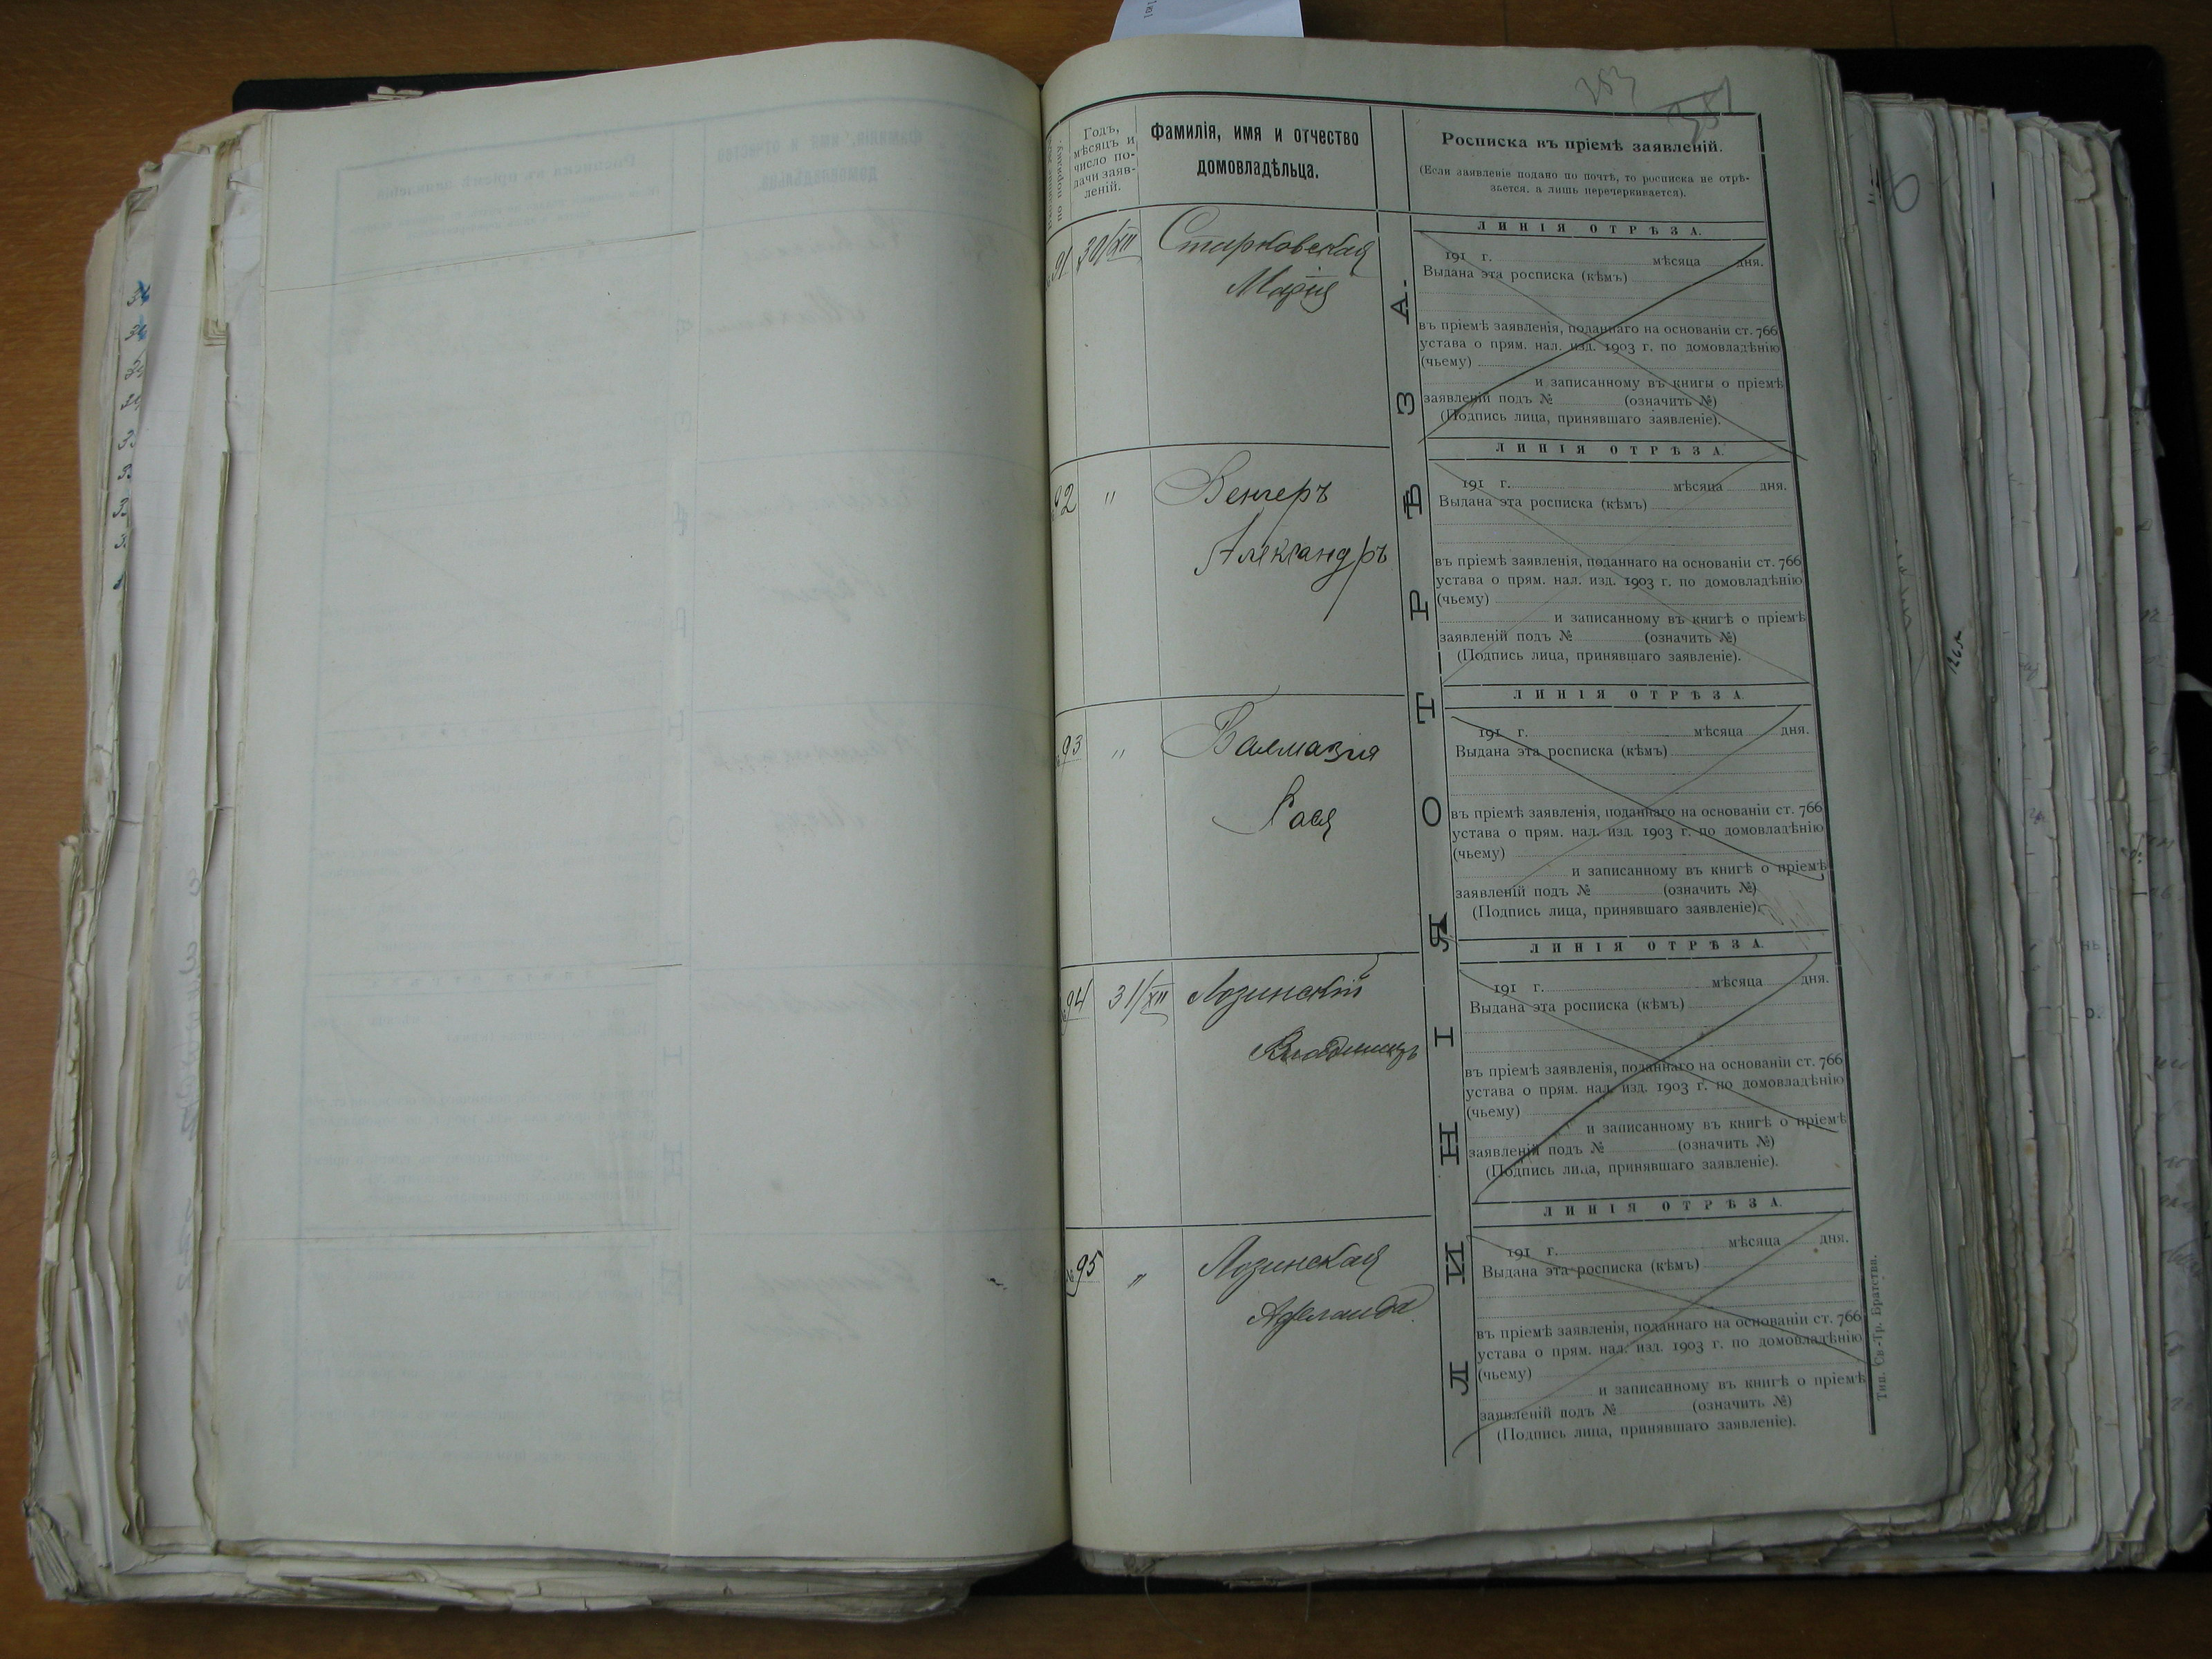 353
351
по порядку.
Годъ,
мѣсяцъ и
число по-
дачи заяв-
леній.
Фамилія, имя и отчество
домовладѣльца.
Росписка въ пріемѣ заявленій.
(Если заявленіе подано по почтѣ, то росписка не отрѣ-
зается, а лишь перечеркивается).
ЛИНІЯ ОТРѢЗА.
91 30/XII Старковская
Марія
ЛИНІЯ ОТРѢЗА.
191 г. мѣсяца дня.
Выдана эта росписка (кѣмъ)
въ пріемѣ заявленія, поданнаго на основаніи ст. 766
устава о прям. нал. изд. 1903 г. по домовладѣнію
(чьему)
и записанному въ книгы о пріемѣ
заявленій подъ № (означить №)
(Подпись лица, принявшаго заявленіе).
92 " Венгеръ
Александръ
ЛИНІЯ ОТРѢЗА.
191 г. мѣсяца дня.
Выдана эта росписка (кѣмъ)
въ пріемѣ заявленія, поданнаго на основаніи ст. 766
устава о прям. нал. изд. 1903 г. по домовладѣнію
(чьему)
и записанному въ книгѣ о пріемѣ
заявленій подъ № (означить №)
(Подпись лица, принявшаго заявленіе).
93 " Балмазія
Рася
ЛИНІЯ ОТРѢЗА.
191 г. мѣсяца дня.
Выдана эта росписка (кѣмъ)
въ пріемѣ заявленія, поданнаго на основаніи ст. 766
устава о прям. нал. изд. 1903 г. по домовладѣнію
(чьему)
и записанному въ книгѣ о пріемѣ
заявленій подъ № (означить №)
(Подпись лица, принявшаго заявленіе).
94 31/XII Лозинскій
ЛИНІЯ ОТРѢЗА.
191 г. мѣсяца дня.
Выдана эта росписка (кѣмъ)
въ пріемѣ заявленія, поданнаго на основаніи ст. 766
устава о прям. нал. изд. 1903 г. по домовладѣнію
(чьему)
и записанному въ книгѣ о пріемѣ
заявленій подъ № (означить №)
(Подпись лица, принявшаго заявленіе).
№ 95 " Лозинская
Аделаида
ЛИНІЯ ОТРѢЗА.
191 г. мѣсяца дня.
Выдана эта росписка (кѣмъ)
въ пріемѣ заявленія, поданнаго на основаніи ст. 766
устава о прям. нал. изд. 1903 г. по домовладѣнію
(чьему)
и записанному въ книгѣ о пріемѣ
заявленій подъ № (означить №)
(Подпись лица, принявшаго заявленіе).
Тип. Св.-Тр. Братства.
1265